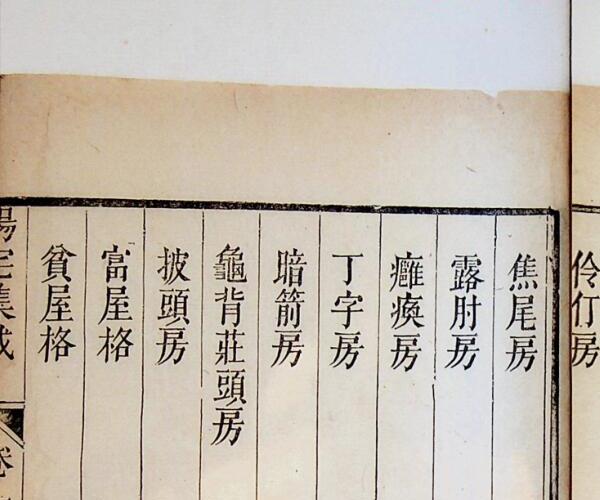 伶仃房
焦尾房
露肘房
癱瘓房
丁字房
暗箭房
龜背莊頭房
披頭房
富屋格
貧屋格
陽宅集成
卷